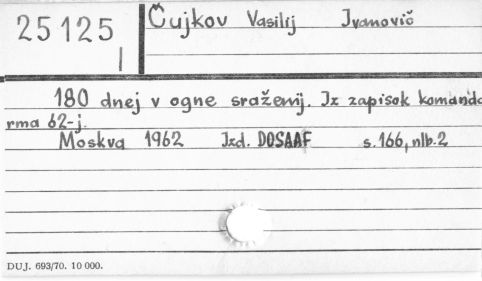 25125
I
Čujkov Vasilij Ivanovič
180 dnej v ogne sraženij. Iz zapisok komanda
rma 62-j.
Moskva 1962 Izd. DOSAAF s.166, nlb.2
DUJ. 693/70. 10 000.